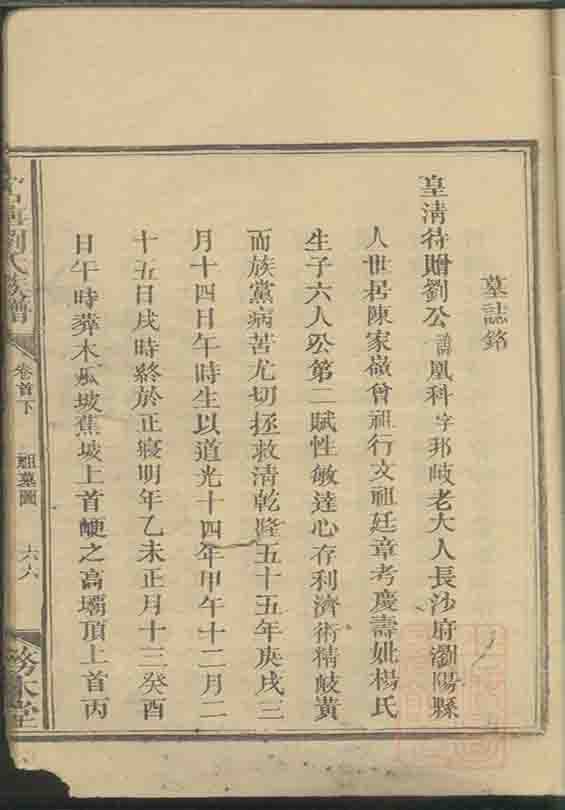 墓誌銘
皇清待贈劉公諱凰科字邦岐老大人長沙府瀏陽縣
人世居陳家嶺曾祖行文祖廷章考慶壽妣楊氏
生子六人公第二賦性敏達心存利濟術精岐黃
而族黨病苦尤切拯救清乾隆五十五年庚戌三
月十四日午時生以道光十四年甲午十二月二
十五日戌時終於正寢明年乙未正月十三癸酉
日午時葬木瓜坡蕉坡上首䡖之高壩頂上首丙
劉氏族譜
卷首下
祖墓圖
六六
務本堂